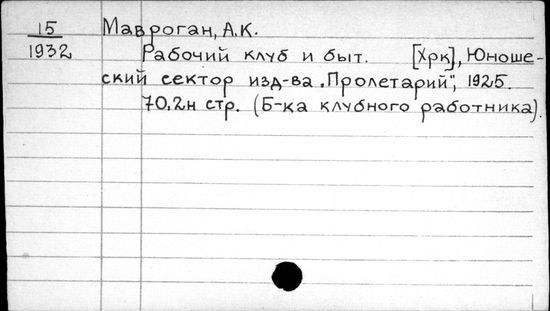 15
1932
Мавроган, А.К.
Рабочий клуб и быт. [Хрк], Юноше-
ский сектор изд-ва „Пролетарий", 1925.
70,2н стр. (Б-ка клубного работника).